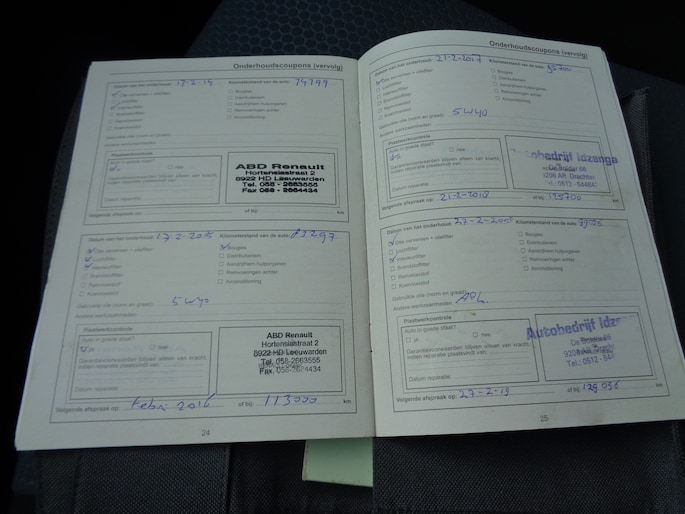 Onderhoudscoupons (vervolg)
Datum van het onderhoud: 17-2-14 Kilometerstand van de auto: 74799
Olie verversen + oliefilter
Luchtfilter
Interieurfilter
Brandstoffilter
Remvloeistof
Koelvloeistof
Bougies
Distributieriem
Aandrijfriem hulporganen
Remvoeringen achter
Airconditioning
Gebruikte olie (norm en graad):
Andere werkzaamheden:
Plaatwerkcontrole
Auto in goede staat?
ja nee
Garantievoorwaarden blijven alleen van kracht,
indien reparatie plaatsvindt van
Datum reparatie:
ABD Renault
Hortensiastraat 2
8922 HD Leeuwarden
Tel. 058 - 2663555
Fax 058 - 2684434
Volgende afspraak op: of bij: km
Datum van het onderhoud: 17-2-2015 Kilometerstand van de auto: 83297
Olie verversen + oliefilter
Luchtfilter
Interieurfilter
Brandstoffilter
Remvloeistof
Koelvloeistof
Bougies
Distributieriem
Aandrijfriem hulporganen
Remvoeringen achter
Airconditioning
Gebruikte olie (norm en graad): 5W40
Andere werkzaamheden:
Plaatwerkcontrole
Auto in goede staat?
ja nee
Garantievoorwaarden blijven alleen van kracht,
indien reparatie plaatsvindt van
Datum reparatie:
ABD Renault
Hortensiastraat 2
8922 HD Leeuwarden
Tel. 058-2663555
Fax. 058-2684434
Volgende afspraak op: Febri 2016 of bij: 113000 km
24
Onderhoudscoupons (vervolg)
Datum van het onderhoud: 21-2-2017 Kilometerstand van de auto:
Olie verversen + oliefilter
Luchtfilter
Interieurfilter
Brandstoffilter
Remvloeistof
Koelvloeistof
Bougies
Distributieriem
Aandrijfriem hulporganen
Remvoeringen achter
Airconditioning
Gebruikte olie (norm en graad): 5W40
Andere werkzaamheden:
Plaatwerkcontrole
Auto in goede staat?
ja nee
Garantievoorwaarden blijven alleen van kracht,
indien reparatie plaatsvindt van
Datum reparatie:
Autobedrijf Idzenga
De Bolder 66
9206 AR Drachten
Tel. 0512 - 54484
Volgende afspraak op: 21-2-2018 of bij: 125700 km
Datum van het onderhoud: Kilometerstand van de auto:
Olie verversen + oliefilter
Luchtfilter
Interieurfilter
Brandstoffilter
Remvloeistof
Koelvloeistof
Bougies
Distributieriem
Aandrijfriem hulporganen
Remvoeringen achter
Airconditioning
Gebruikte olie (norm en graad):
Andere werkzaamheden:
Plaatwerkcontrole
Auto in goede staat?
ja nee
Garantievoorwaarden blijven alleen van kracht,
indien reparatie plaatsvindt van
Datum reparatie:
Autobedrijf Idze
De Bolder 66
9206 AR Dracht
Tel.: 0512 - 541
Volgende afspraak op: 27-2-19 of bij: 129036 km
25